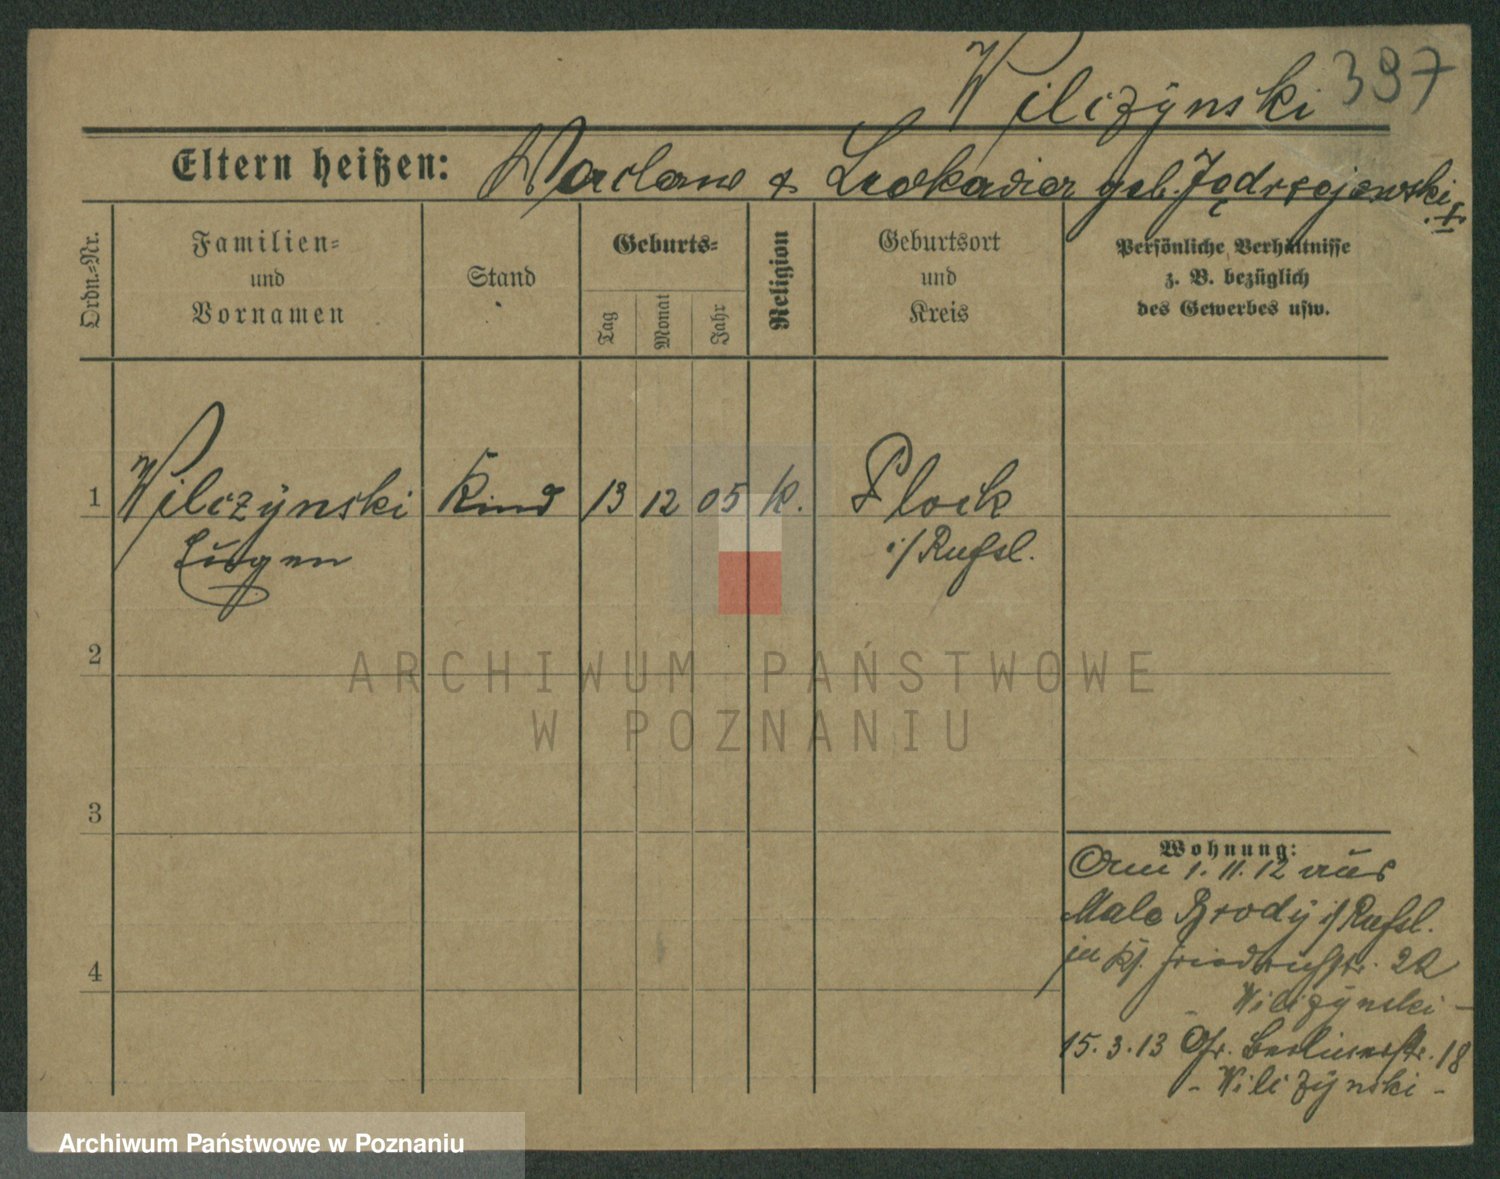 Wilczÿnski 397
Eltern heißen: Waclaw & Leokadia geb. Jędrzejewski
Ordn.=Nr.
Familien=
und
Vornamen
Stand
Geburts=
Tag
Monat
Jahr
Religion
Geburtsort
und
Kreis
Persönliche Verhältnisse
z. B. bezüglich
des Gewerbes usw.
1 Wilczÿnski Kind 13 12 05 k. Plock
Eugen i/Rußl.
2
3
4
Wohnung:
Am 1.11.12 aus
Male Brodÿ i/Rußl.
zu Friedrichstr. 22
- Wilczÿnski -
15.3.13 Gr. Berlinerstr. 18
- Wilczÿnski -
ARCHIWUM PAŃSTWOWE
W POZNANIU
Archiwum Państwowe w Poznaniu